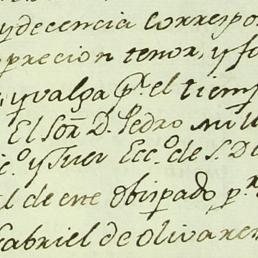 y decencia correspo
precion tenor, y fo
, y valga pr. el tiemp
El Sor. D. Pedro
ic.o y Juez Ecc.o de S. D
l de este Obispado pr.
Gabriel de Olivares